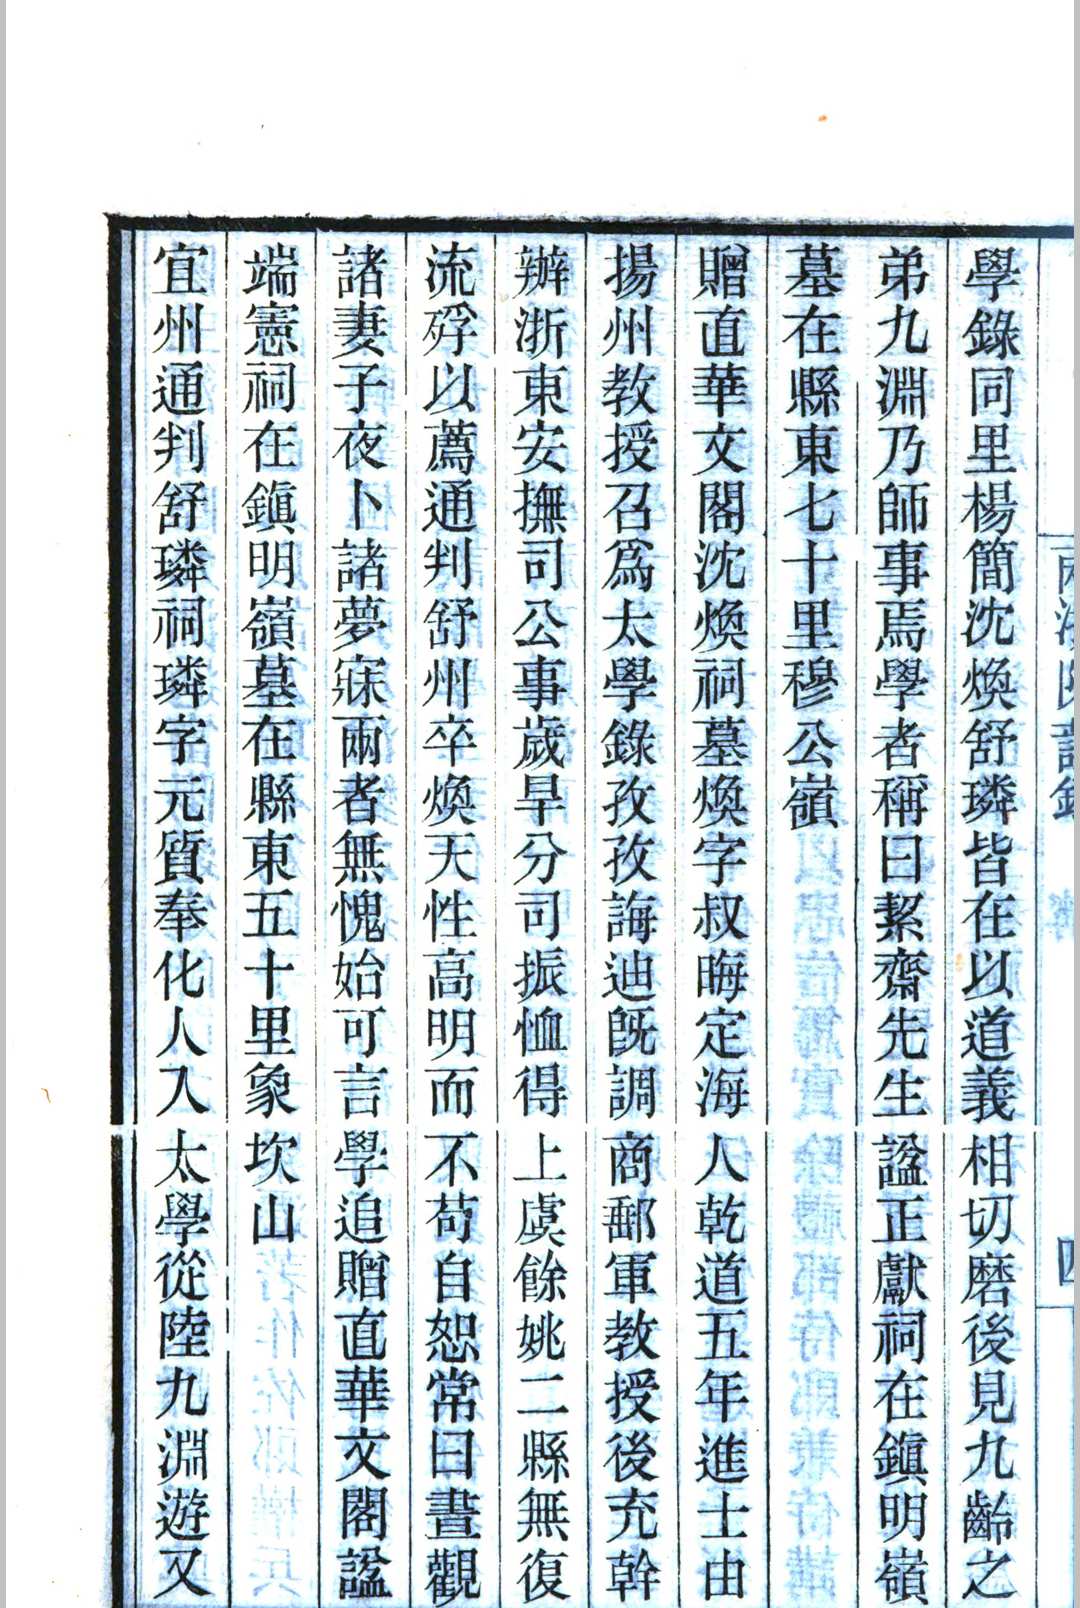 學錄同里楊簡沈煥舒璘皆在以道義相切磨後見九齡之
弟九淵乃師事焉學者稱曰絜齋先生諡正獻祠在鎭明嶺
墓在縣東七十里穆公嶺
贈直華文閣沈煥祠墓煥字叔晦定海人乾道五年進士由
揚州教授召爲太學錄孜孜誨迪旣調商郵軍教授後充幹
辦浙東安撫司公事歲旱分司振恤得上虞餘姚二縣無復
流殍以薦通判舒州卒煥天性高明而不苟自恕常曰晝觀
諸妻子夜卜諸夢寐兩者無愧始可言學追贈直華文閣諡
端憲祠在鎭明嶺墓在縣東五十里象坎山
宜州通判舒璘祠璘字元質奉化人入太學從陸九淵遊又